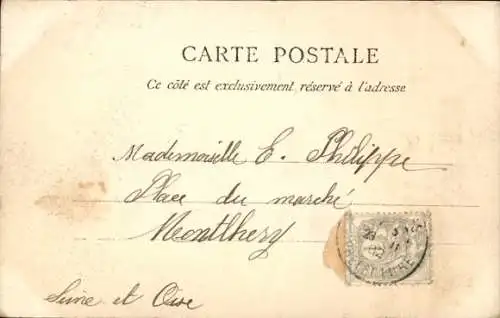 CARTE POSTALE
Ce côté est exclusivement réservé à l'adresse
Mademoiselle E. Philippe
Place du marché
Montlhery
Seine et Oise